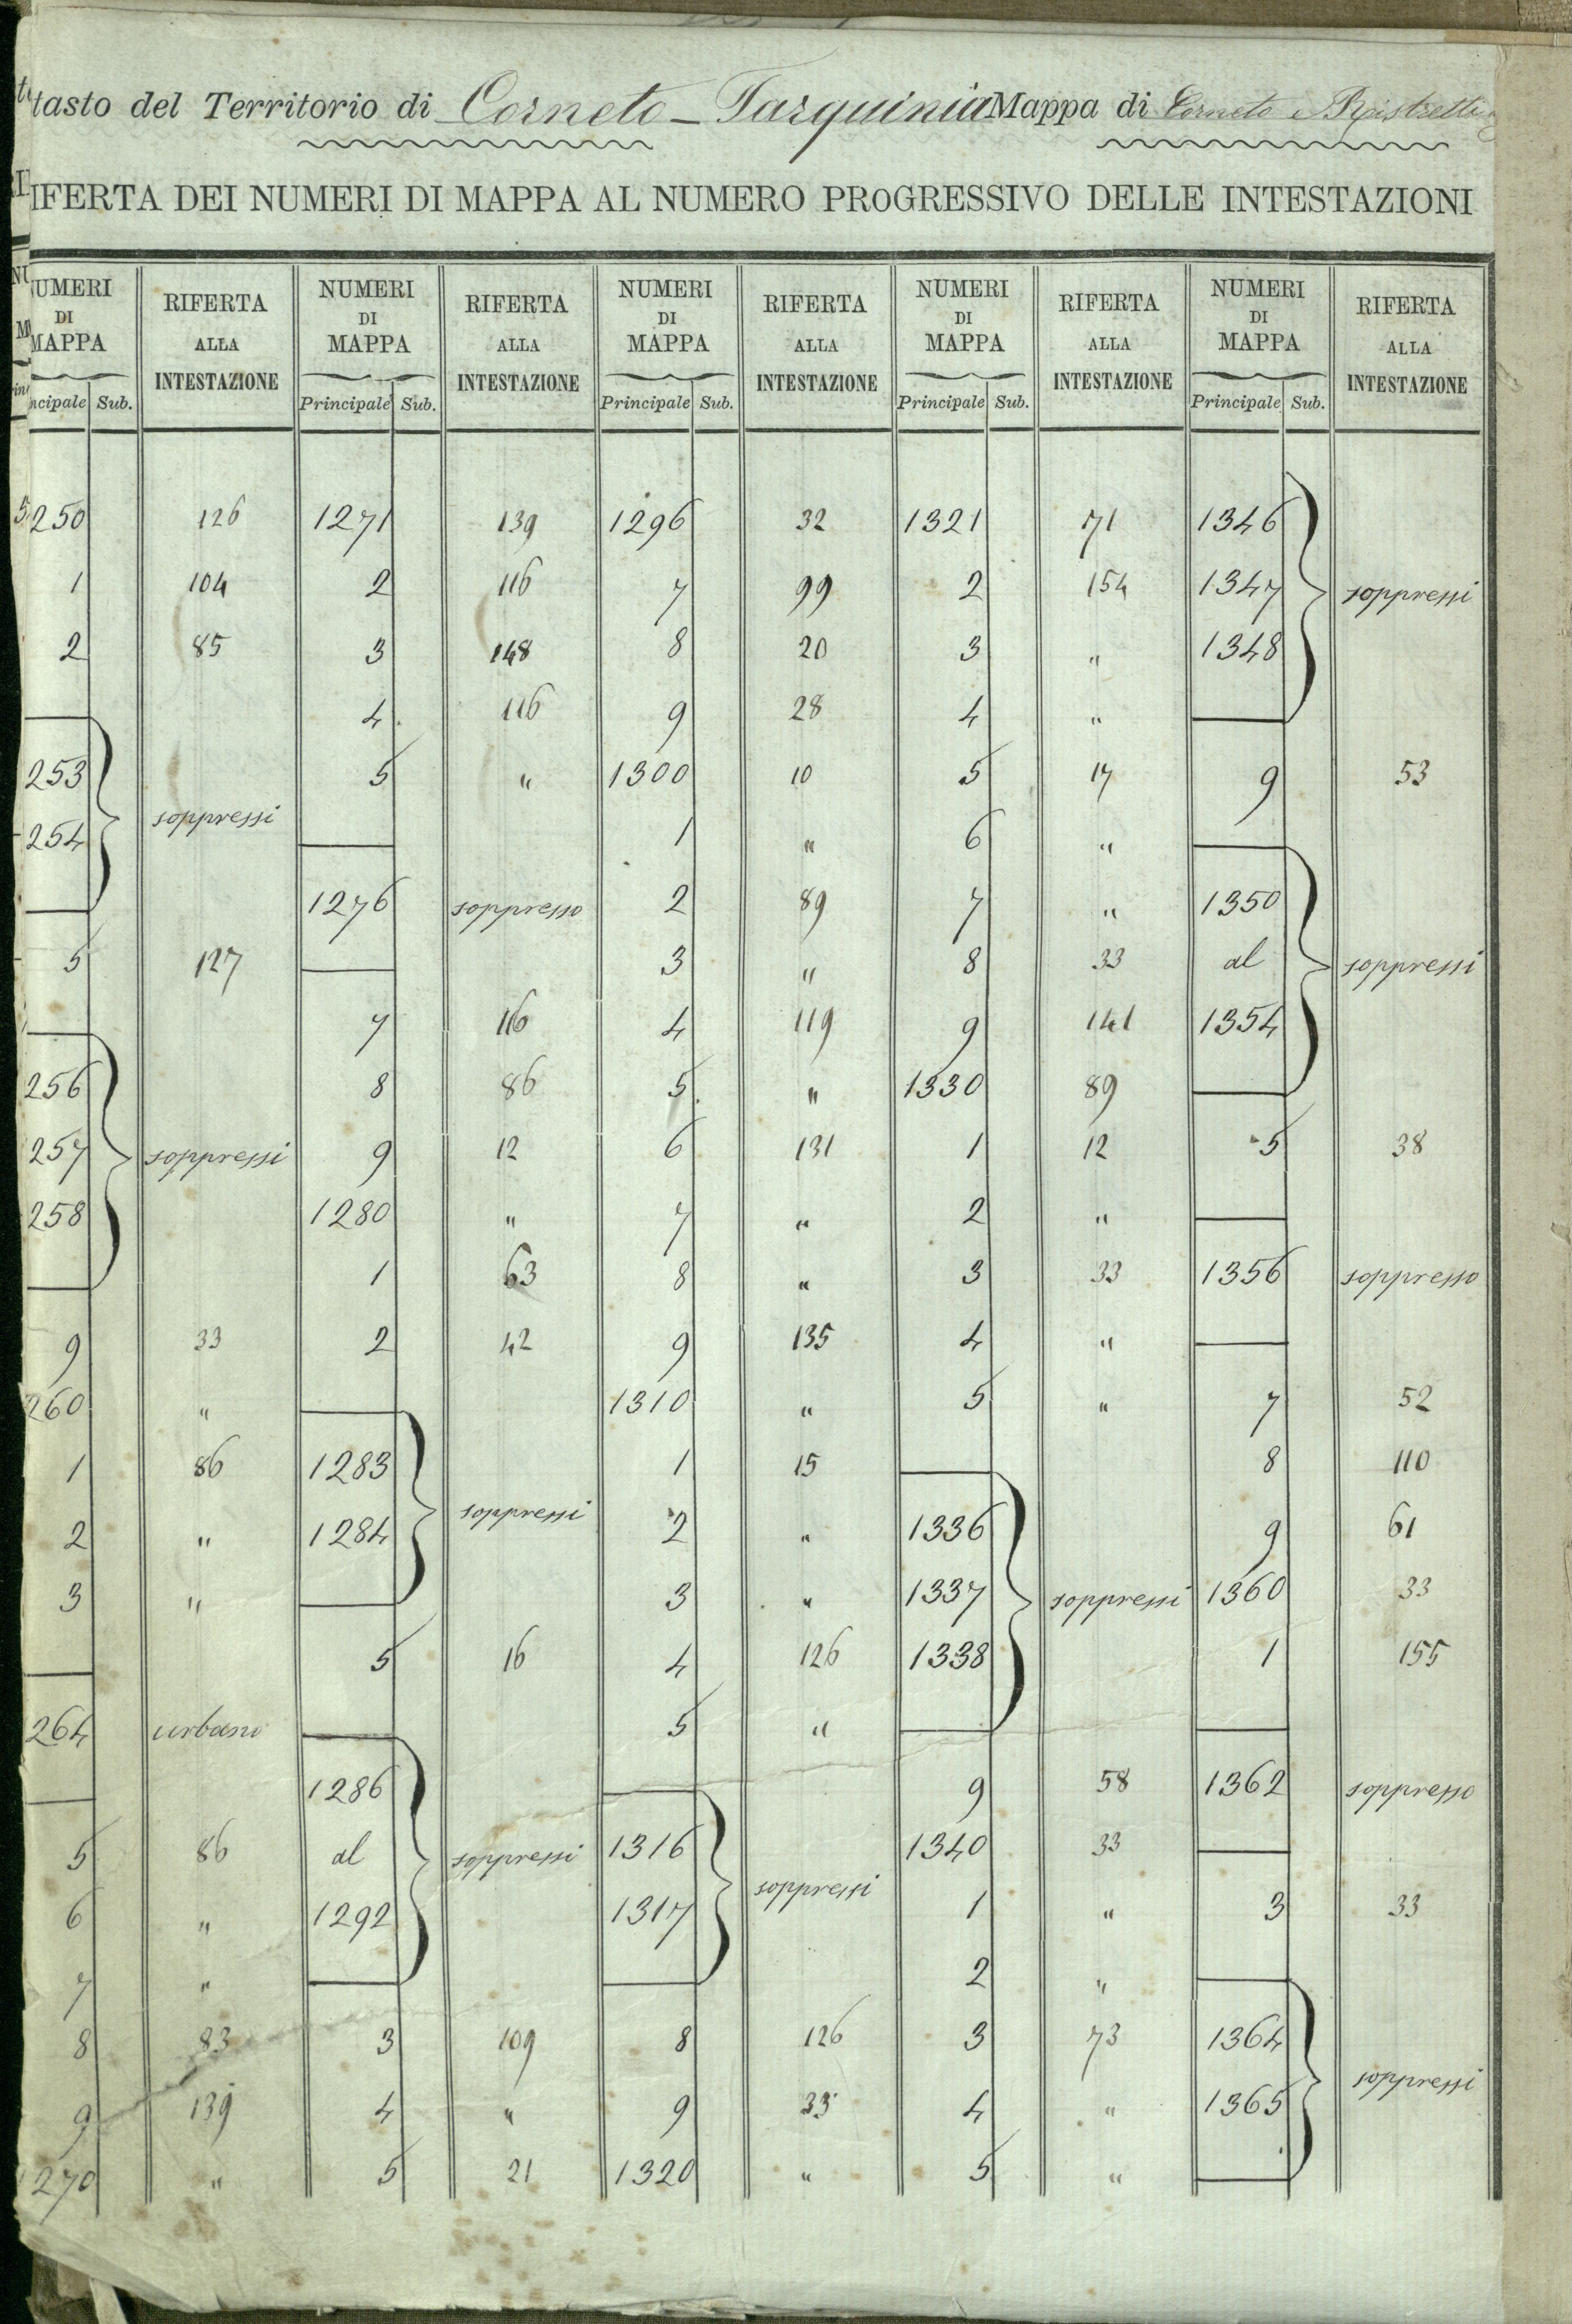 tasto del Territorio di Corneto - Tarquinia Mappa di Corneto e Ristretto
IFERTA DEI NUMERI DI MAPPA AL NUMERO PROGRESSIVO DELLE INTESTAZIONI
NUMERI DI MAPPA RIFERTA ALLA INTESTAZIONE NUMERI DI MAPPA RIFERTA ALLA INTESTAZIONE NUMERI DI MAPPA RIFERTA ALLA INTESTAZIONE NUMERI DI MAPPA RIFERTA ALLA INTESTAZIONE NUMERI DI MAPPA RIFERTA ALLA INTESTAZIONE
ncipale Sub. Principale Sub. Principale Sub. Principale Sub. Principale Sub.
250 126
1 104
2 85
253
254
soppressi
5 127
256
257
258
soppressi
9 33
260 "
1 86
2 "
3 "
264 urbano
5 86
6 "
7 "
8 83
9 139
270 "
1271 139
2 116
3 148
4 116
5 "
1276 soppresso
7 116
8 86
9 12
1280 "
1 63
2 42
1283
1284
soppressi
5 16
1286
al
1292
soppressi
3 109
4 "
5 21
1296 32
7 99
8 20
9 28
1300 10
1 "
2 89
3 "
4 119
5 "
6 131
7 "
8 "
9 135
1310 "
1 15
2 "
3 "
4 126
5 "
1316
1317
soppressi
8 126
9 33
1320 "
1321 71
2 154
3 "
4 "
5 17
6 "
7 "
8 33
9 141
1330 89
1 12
2 "
3 33
4 "
5 "
1336
1337
1338
soppressi
9 58
1340 33
1 "
2 "
3 73
4 "
5 "
1346
1347
1348
soppressi
9 53
1350
al
1354
soppressi
5 38
1356 soppresso
7 52
8 110
9 61
1360 33
1 155
1362 soppresso
3 33
1364
1365
soppressi